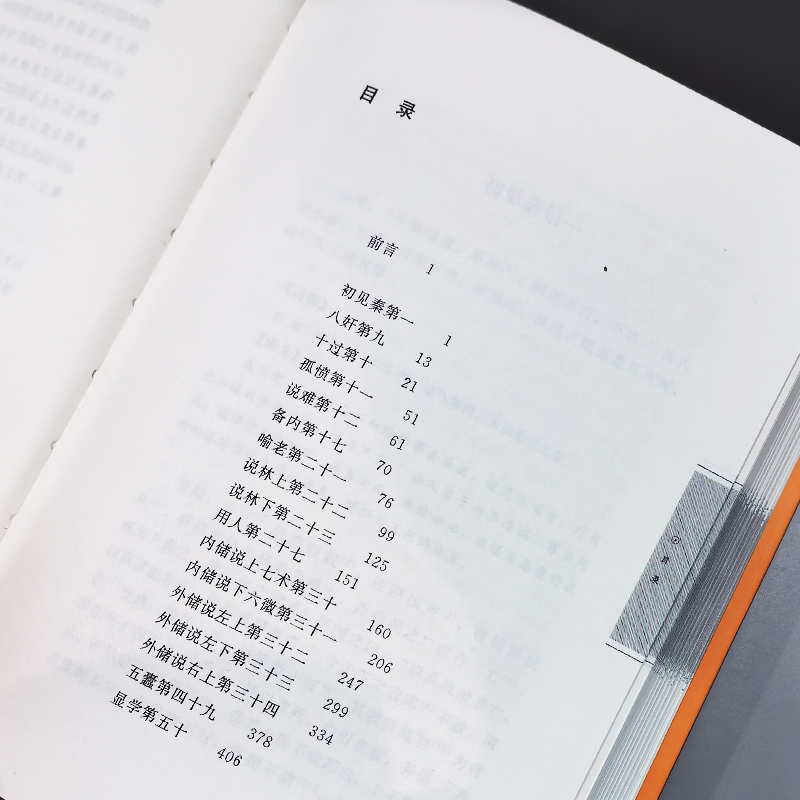 目 录
前言 1
初见秦第一 1
八奸第九 13
十过第十 21
孤愤第十一 51
说难第十二 61
备内第十七 70
喻老第二十一 76
说林上第二十二 99
说林下第二十三 125
用人第二十七 151
内储说上七术第三十 160
内储说下六微第三十一 206
外储说左上第三十二 247
外储说左下第三十三 299
外储说右上第三十四 334
五蠹第四十九 378
显学第五十 406
目录